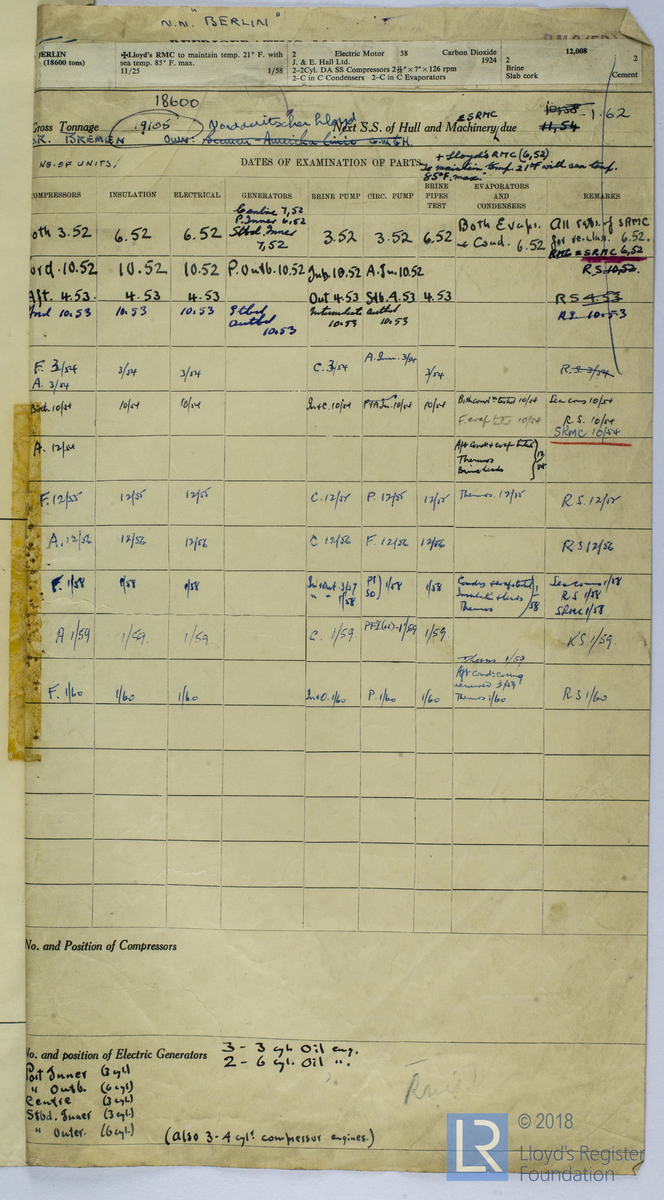 N.N. "BERLIN"
BERLIN
(18600 tons)
✠Lloyd's RMC to maintain temp. 21° F. with
sea temp. 85° F. max.
11/25 1/58
2 Electric Motor 58 Carbon Dioxide
J. & E. Hall Ltd. 1924
2–2Cyl. DA SS Compressors 2 11/16" × 7" × 126 rpm
2–C in C Condensers 2–C in C Evaporators
12,008
2
2
Brine
Slab cork
Cement
18600
Gross Tonnage 19105 Norddeutscher Lloyd Next S.S. of Hull and Machinery due 10,58 1.62
& SRMC
11,54
BREMEN OWN: Bremen-Amerika Linie G.m.b.H.
+ Lloyd's RMC (6,52)
to maintain temp. 21°F with sea temp.
85°F. max.
NO. OF UNITS/
DATES OF EXAMINATION OF PARTS
COMPRESSORS INSULATION ELECTRICAL GENERATORS BRINE PUMP CIRC. PUMP BRINE PIPES TEST EVAPORATORS AND CONDENSERS REMARKS
Centre 7,52
P. Inner 6,52
Stbd. Inner 7,52
oth 3.52 6.52 6.52 3.52 3.52 6.52 Both Evaps. & Cond. 6.52 All reqs. of SRMC for re-class. 6.52.
RMC & SRMC 6,52
ord. 10.52 10.52 10.52 P. Outb. 10.52 Inb. 10.52 A. In. 10.52 R.S. 10,52.
Aft. 4.53. 4.53 4.53 Out 4.53 Stb. 4.53 4.53 RS 4.53
Ford 10.53 10.53 10.53 Stbd outbd 10.53 Intermediate 10.53 outbd 10.53 R.S. 10.53
F. 3/54 3/54 3/54 C. 3/54 A. Inn. 3/54 3/54 R.S. 3/54
A. 3/54
Both 10/54 10/54 10/54 In+C. 10/54 10/54 10/54 Both conds tested 10/54 Sea cons 10/54
F. evap tested 10/54 R.S. 10/54
SRMC 10/54
A. 12/54 Aft Conds & evap tested
Thermos
Brine leads
12/54
F. 12/55 12/55 12/55 C. 12/55 P. 12/55 12/55 Thermos. 12/55 R.S. 12/55
A. 12/56 12/56 12/56 C 12/56 F. 12/56 12/56 R.S 12/56
F. 1/58 1/58 1/58 In+out. 3/57 1/58 1/58 1/58 Conds & evap tested Sea cons 1/58
" " 1/58 Thermos 1/58 R.S 1/58
SRMC 1/58
A 1/59 1/59. 1/59. C. 1/59 1/59 1/59. Thermos 1/59 R.S 1/59.
Aft conds casing
renewed 3/59
F. 1/60 1/60 1/60 In+O. 1/60 P. 1/60 1/60 Thermos 1/60 R.S 1/60
No. and Position of Compressors
No. and position of Electric Generators 3 – 3 cyl. Oil eng.
2 – 6 cyl. Oil ".
Port Inner (3 cyl)
" Outb. (6 cyl)
Centre (3 cyl)
Stbd. Inner (3 cyl)
" Outer. (6 cyl)
(also 3-4 cyl. compressor engines.)
LR
© 2018
Lloyd's Register
Foundation